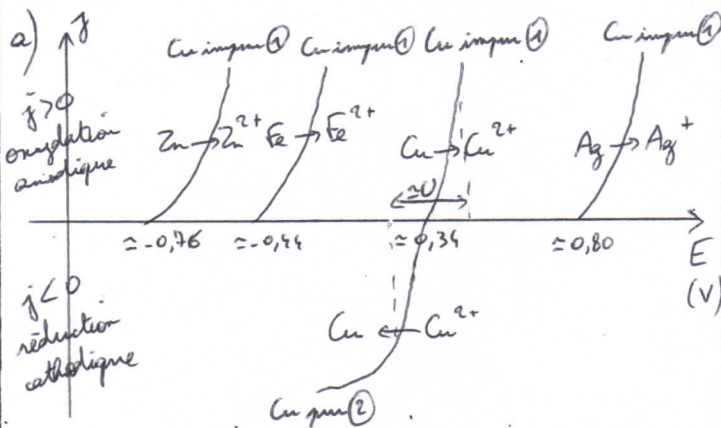 a) j
Cu impur ① Cu impur ① Cu impur ① Cu impur ①
j>0
oxydation
anodique
Zn → Zn²⁺ Fe → Fe²⁺ Cu → Cu²⁺ Ag → Ag⁺
≃0
≃-0,76 ≃-0,44 ≃0,34 ≃0,80 E
(V)
j<0
réduction
cathodique
Cu ← Cu²⁺
Cu pur ②